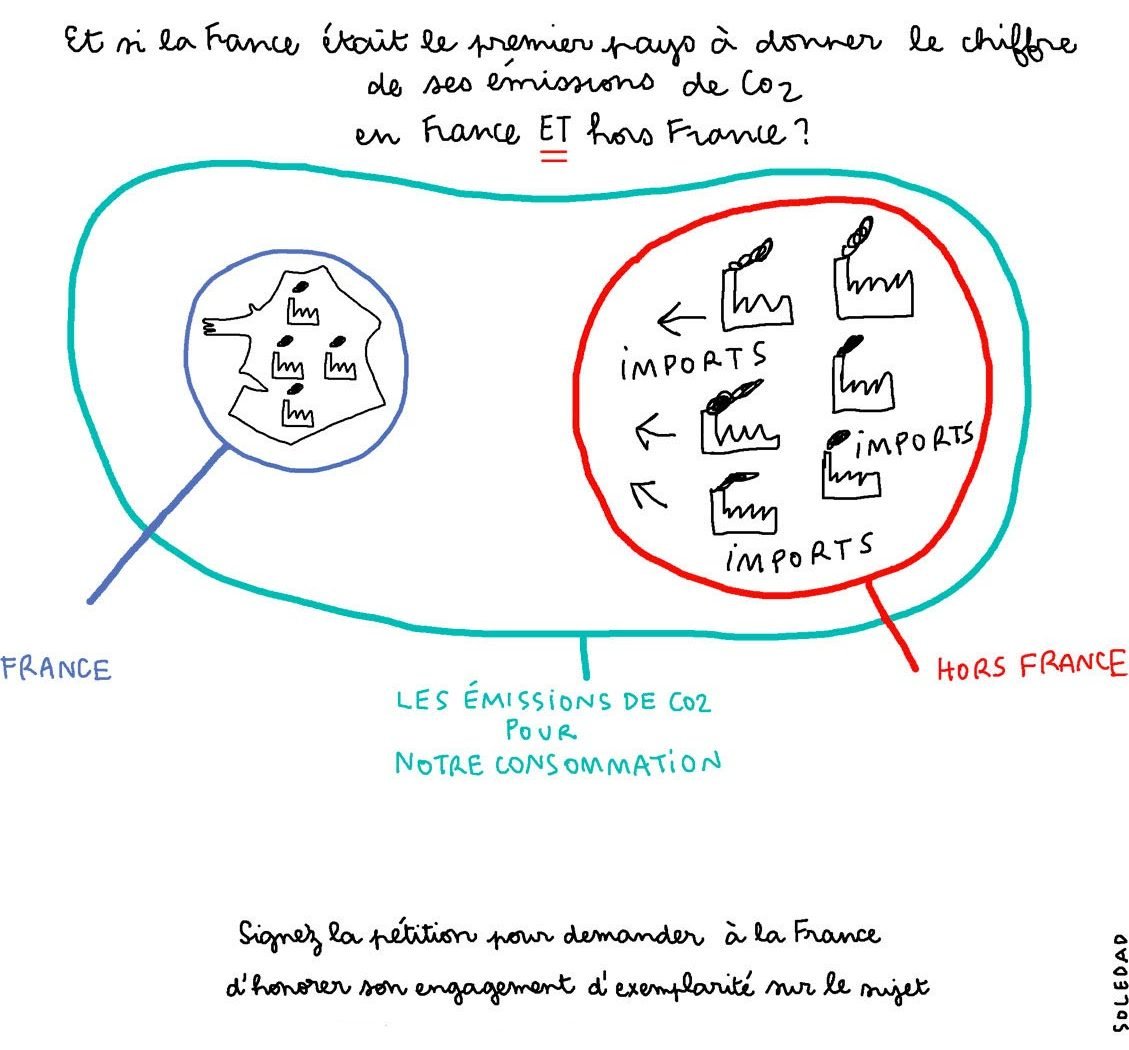 Et si la France était le premier pays à donner le chiffre
de ses émissions de CO2
en France ET hors France ?
IMPORTS
IMPORTS
IMPORTS
FRANCE
HORS FRANCE
LES ÉMISSIONS DE CO2
POUR
NOTRE CONSOMMATION
Signez la pétition pour demander à la France
d'honorer son engagement d'exemplarité sur le sujet
SOLEDAD